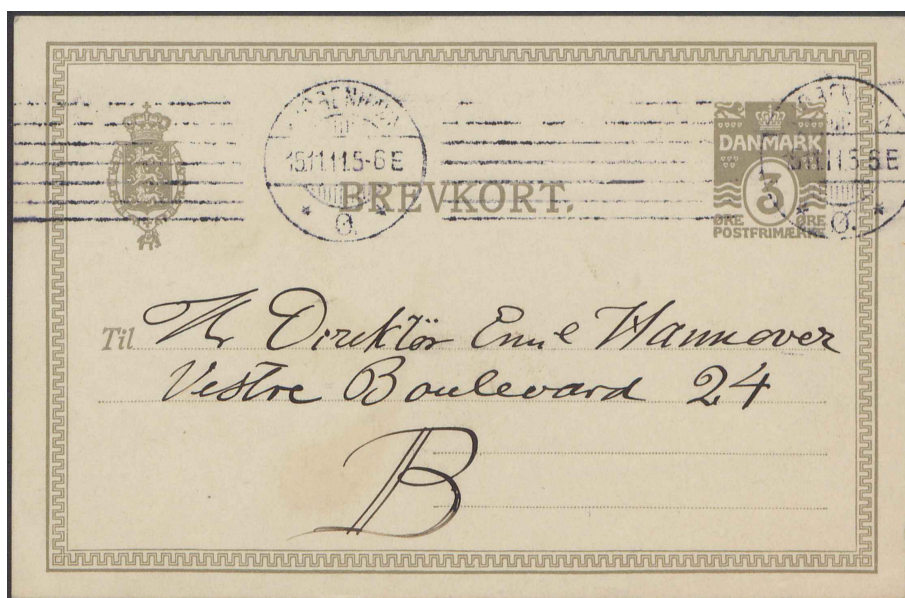 KØBENHAVN
15.11.11.5-6 E
Ø.
BREVKORT.
DANMARK
3
ØRE ØRE
POSTFRIMÆRKE
KØBENHAVN
15.11.11.5-6 E
Ø.
Til Hr Direktör Emil Hannover
Vestre Boulevard 24
B